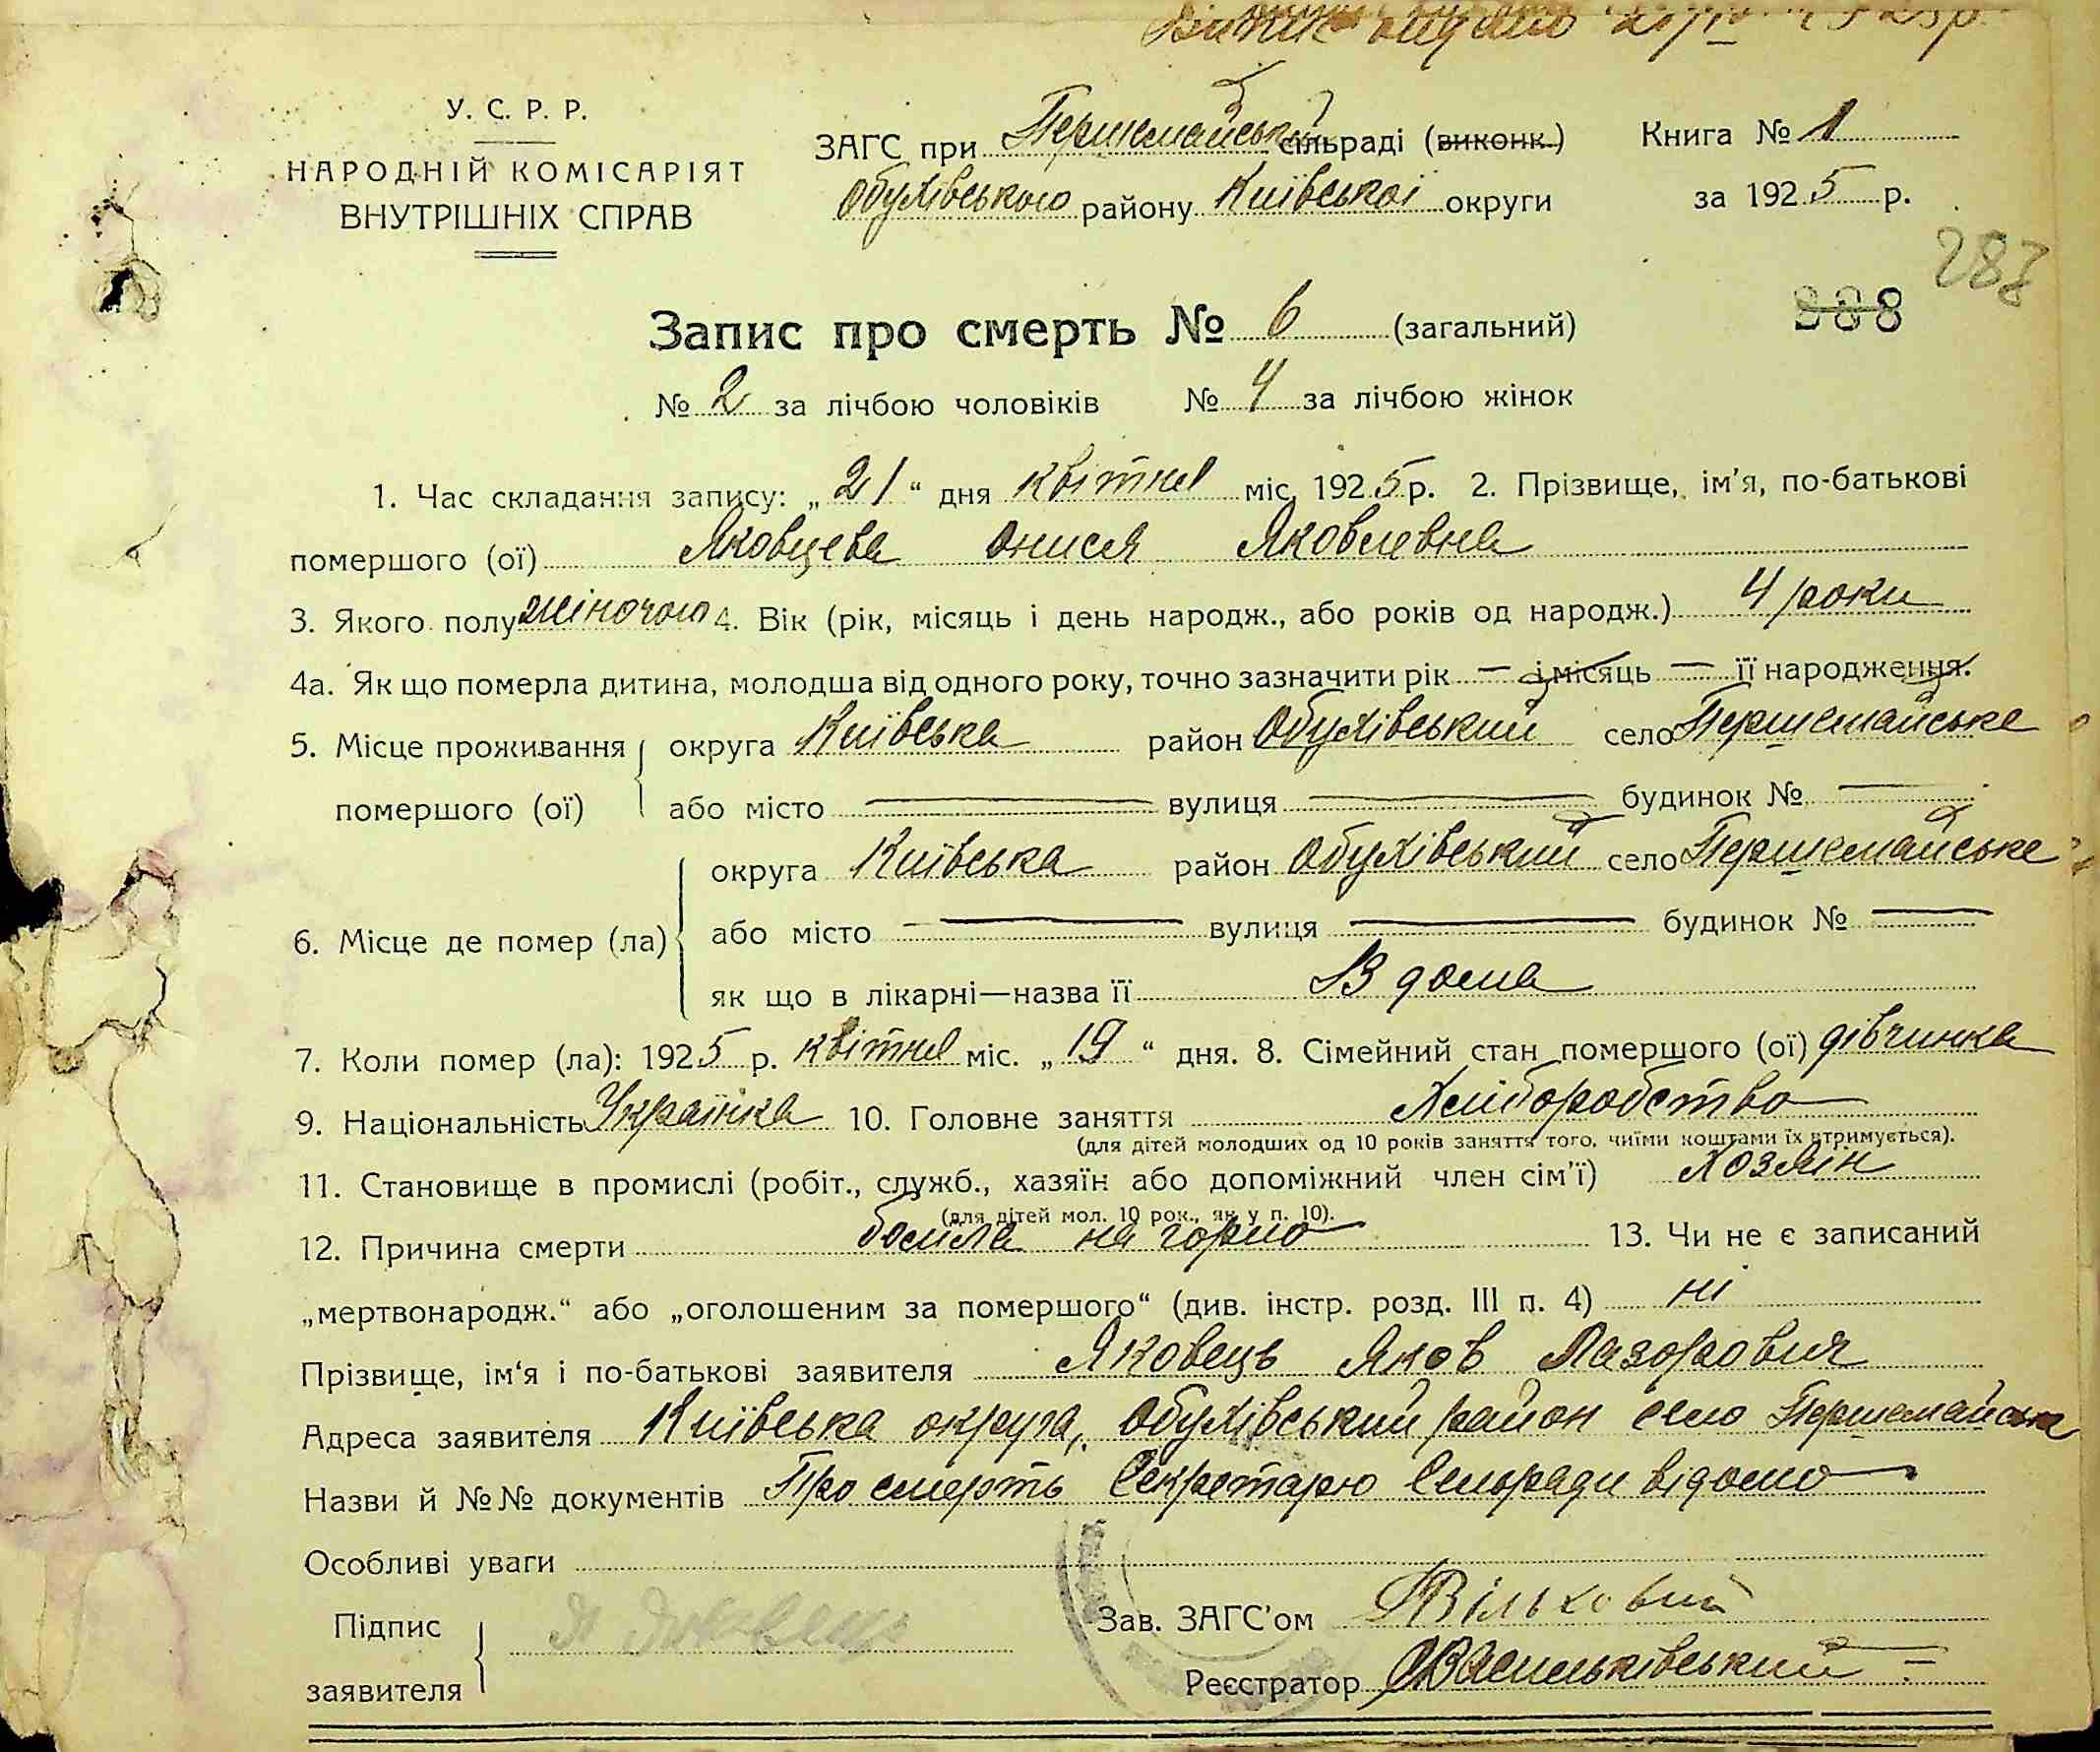 У. С. Р. Р.
НАРОДНІЙ КОМІСАРІЯТ
ВНУТРІШНІХ СПРАВ
ЗАГС при Першемайській сільраді (виконк.) Книга № 1
Обухівського району Київської округи за 1925 р.
287
888
Запис про смерть № 6 (загальний)
№ 2 за лічбою чоловіків № 4 за лічбою жінок
1. Час складання запису: „21“ дня квітня міс. 1925 р. 2. Прізвище, ім'я, по-батькові
помершого (ої) Яковцева Онися Яковлевна
3. Якого полу жіночого 4. Вік (рік, місяць і день народж., або років од народж.) 4 роки
4а. Як що померла дитина, молодша від одного року, точно зазначити рік — і місяць — її народження.
5. Місце проживання помершого (ої) округа Київська район Обухівський село Першемайське
або місто — вулиця — будинок № —
6. Місце де помер (ла) округа Київська район Обухівський село Першемайське
або місто — вулиця — будинок № —
як що в лікарні—назва її В дома
7. Коли помер (ла): 1925 р. квітня міс. „19“ дня. 8. Сімейний стан помершого (ої) дівчинка
9. Національність Українка 10. Головне заняття Хліборобство
(для дітей молодших од 10 років заняття того, чиїми коштами їх утримується).
11. Становище в промислі (робіт., служб., хазяїн або допоміжний член сім'ї) Хозяїн
(для дітей мол. 10 рок., як у п. 10).
12. Причина смерти боліла на горло 13. Чи не є записаний
„мертвонародж.“ або „оголошеним за помершого“ (див. інстр. розд. III п. 4) ні
Прізвище, ім'я і по-батькові заявителя Яковець Яков Лазорович
Адреса заявителя Київська округа, Обухівський район село Першемайське
Назви й №№ документів Про смерть Секретарю Сельради відомо
Особливі уваги
Підпис заявителя Я Яковець
Зав. ЗАГС'ом Вільховий
Реєстратор Васильківський